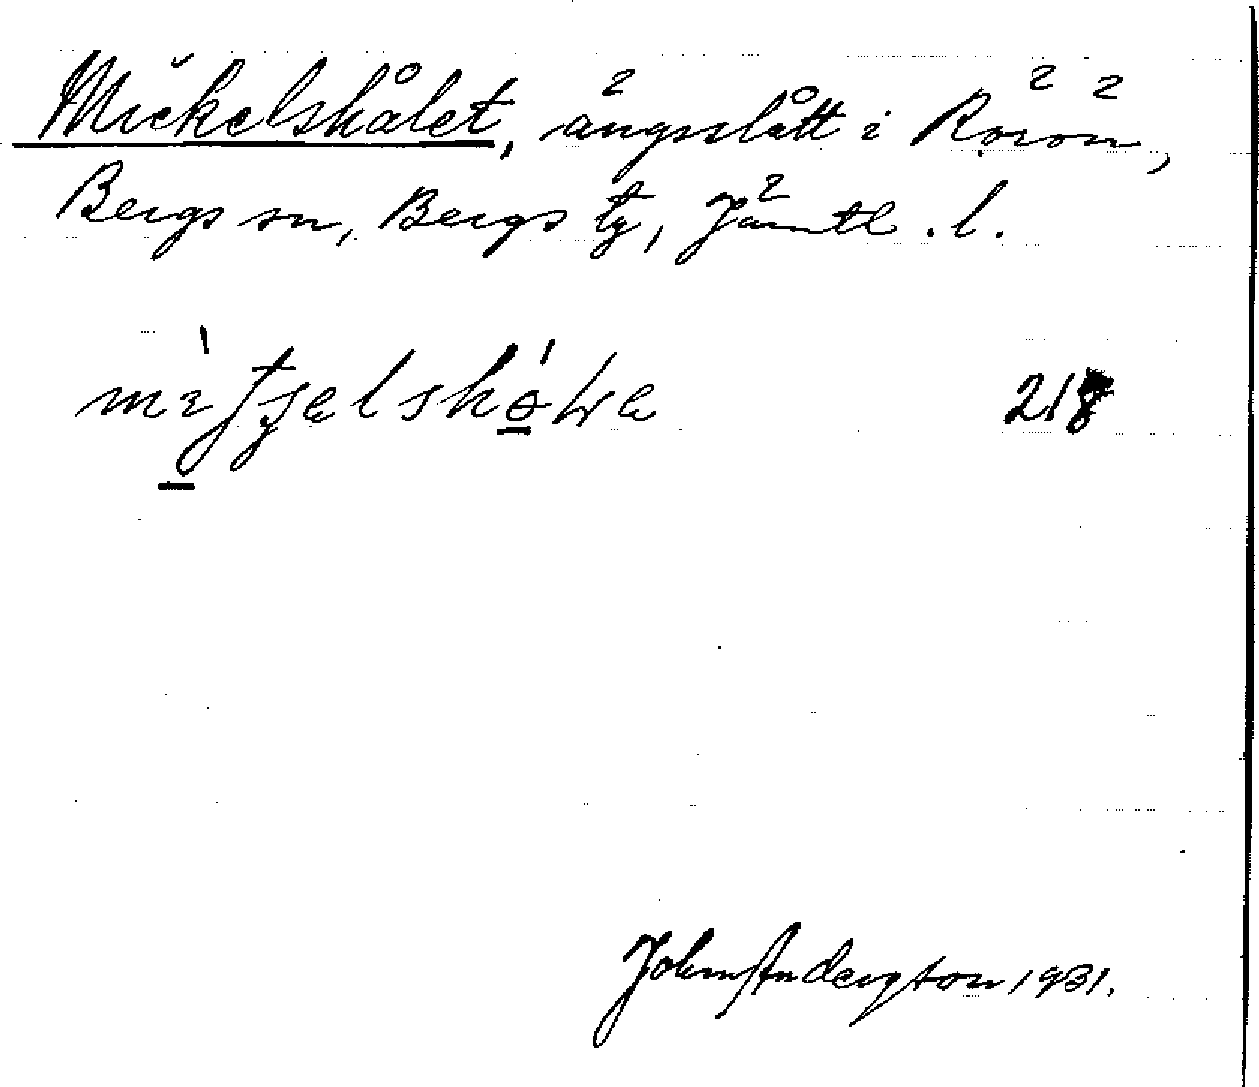 Mickelshålet, ängsslått i Rörön,
Bergs sn, Bergs tg, Jämtl. l.
218
John Anderson 1931.